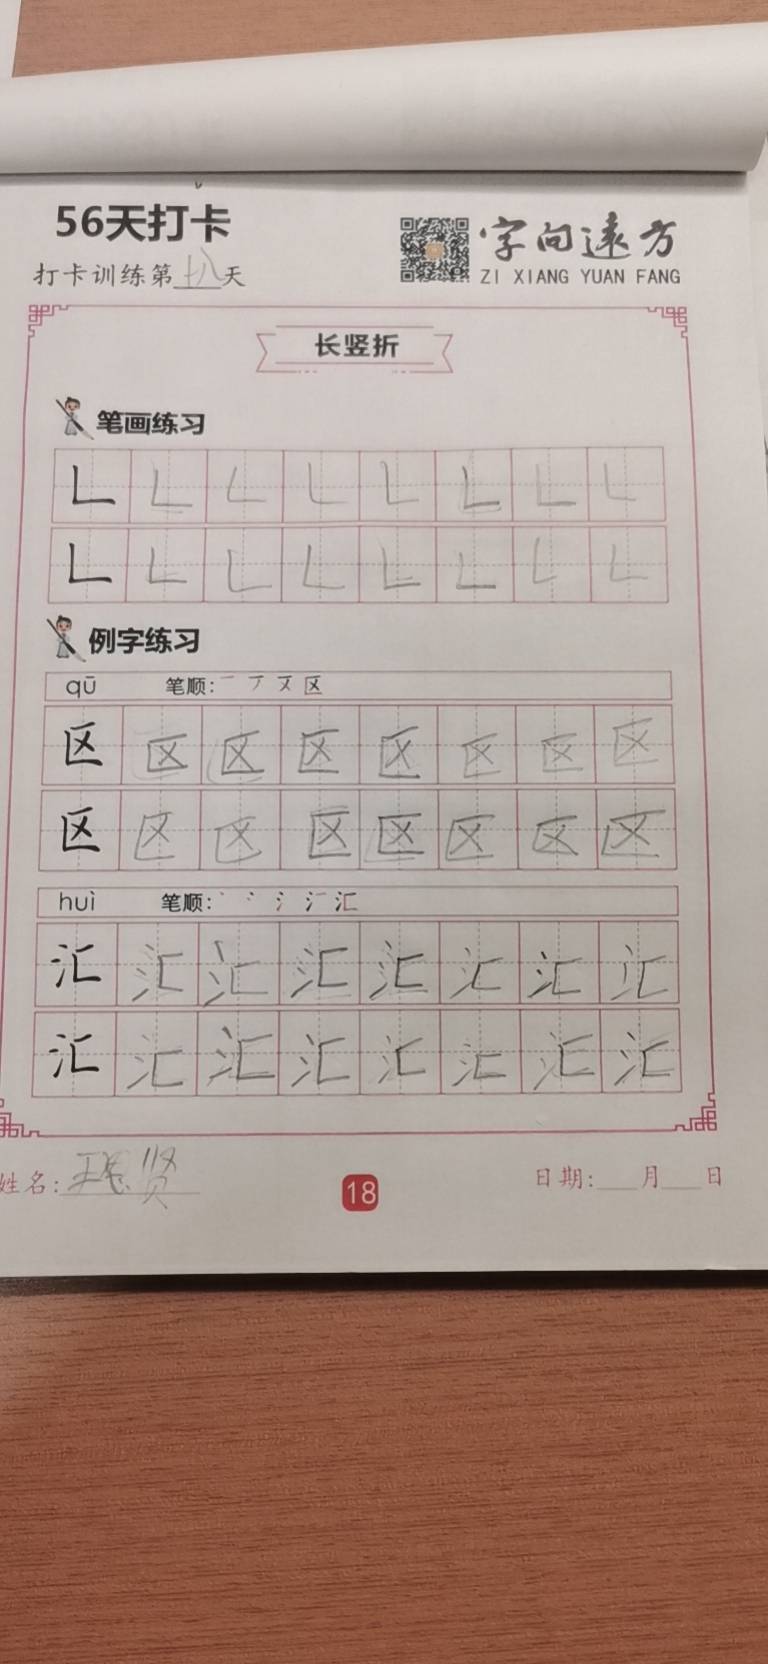 56天打卡
字向远方
打卡训练第十八天
ZI XIANG YUAN FANG
长竖折
笔画练习
例字练习
qū 笔顺: 区
区 区 区 区 区 区 区 区
区 区 区 区 区 区 区 区
huì 笔顺: 汇
汇 汇 汇 汇 汇 汇 汇 汇
汇 汇 汇 汇 汇 汇 汇 汇
姓名: 贤
18
日期: 月 日